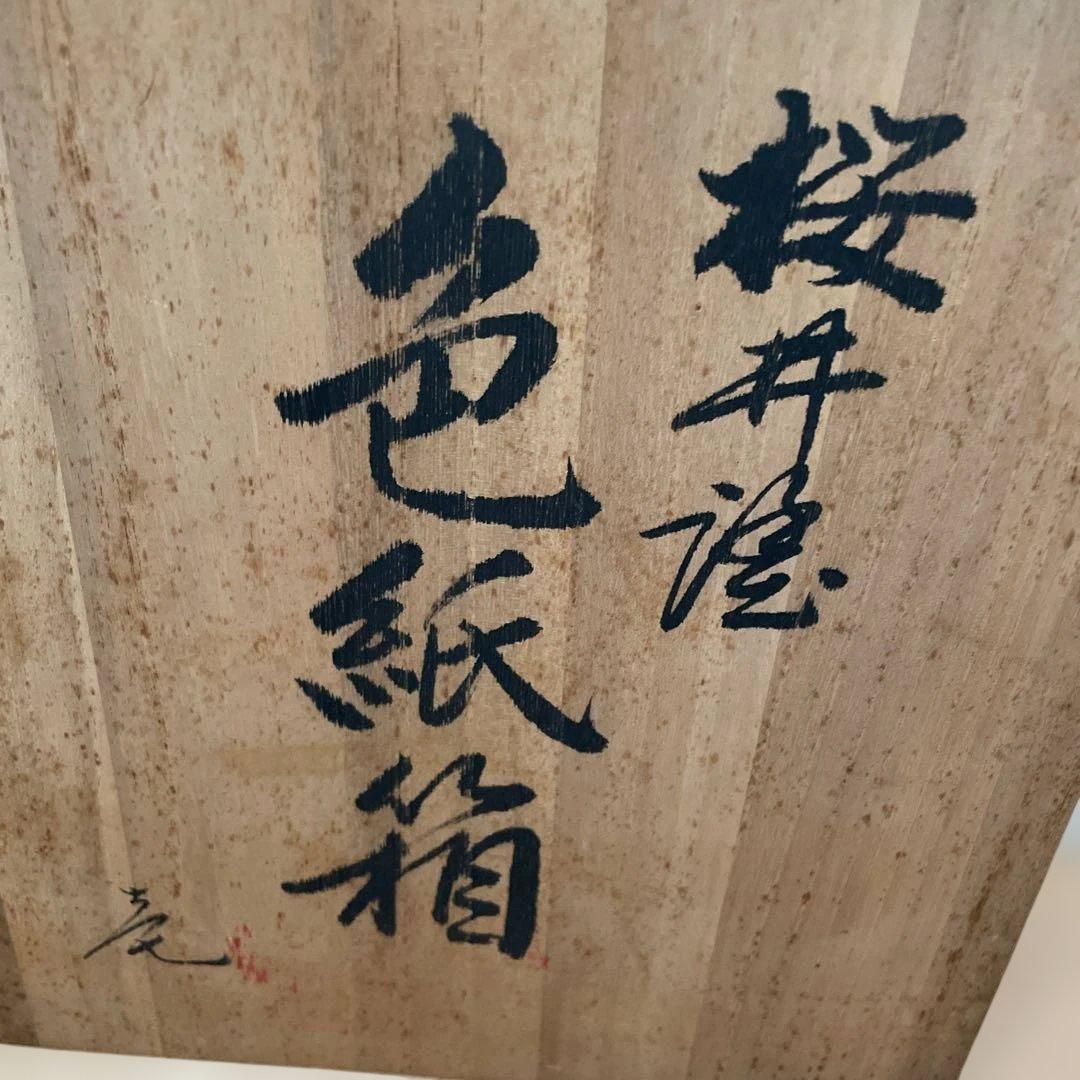 桜井謡
色紙箱